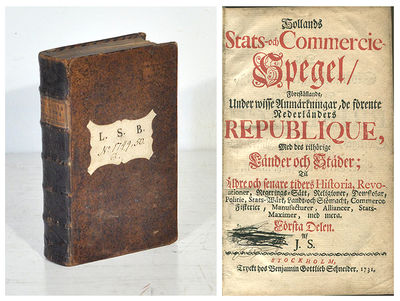 L. S. B.
Hollands
Stats- och Commercie-
Spegel/
Föreställande,
Under wisse Anmärkningar, de förente
Nederländers
REPUBLIQUE,
Med des tilhörige
Länder och Städer;
Til
Äldre och senare tiders Historia, Revo-
lutioner, Regerings-Sätt, Religioner, Domstolar,
Politie, Stats-Wärk, Landt- och Siömacht, Commerce
Fiskerier, Manufacturer, Alliancer, Stats-
Maximer, med mera.
Första Delen.
Af
J. S.
STOCKHOLM,
Tryckt hos Benjamin Gottlieb Schneider, 1731.